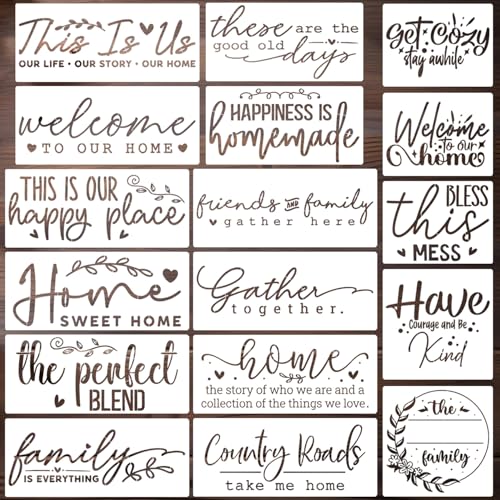 This Is Us
OUR LIFE • OUR STORY • OUR HOME
these are the
good old days
Get Cozy
stay awhile
welcome
TO OUR HOME
HAPPINESS IS
homemade
Welcome
to our
home
THIS IS OUR
happy place
friends AND family
gather here
BLESS
this
MESS
Home
SWEET HOME
Gather
together.
Have
Courage and Be
Kind
the perfect
BLEND
home
the story of who we are and a
collection of the things we love.
the
family
family
IS EVERYTHING
Country Roads
take me home